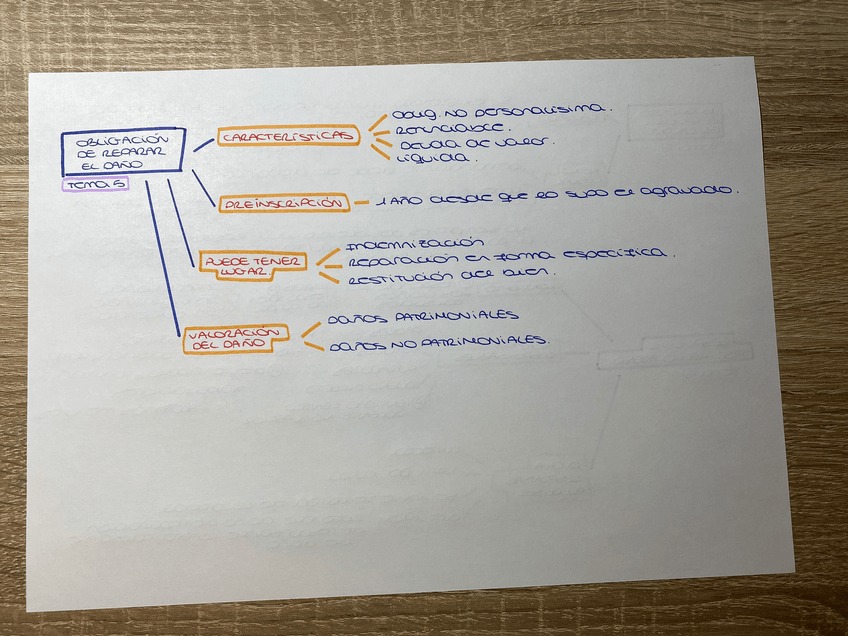 OBLIGACIÓN
DE REPARAR
EL DAÑO
TEMA 5
CARACTERÍSTICAS
OBLIG. NO PERSONALÍSIMA.
RENUNCIABLE.
DEUDA DE VALOR.
LÍQUIDA.
PREINSCRIPCIÓN
1 AÑO DESDE QUE LO SUPO EL AGRAVIADO.
PUEDE TENER
LUGAR.
INDEMNIZACIÓN
REPARACIÓN EN FORMA ESPECÍFICA.
RESTITUCIÓN DEL BIEN.
VALORACIÓN
DEL DAÑO
DAÑOS PATRIMONIALES
DAÑOS NO PATRIMONIALES.